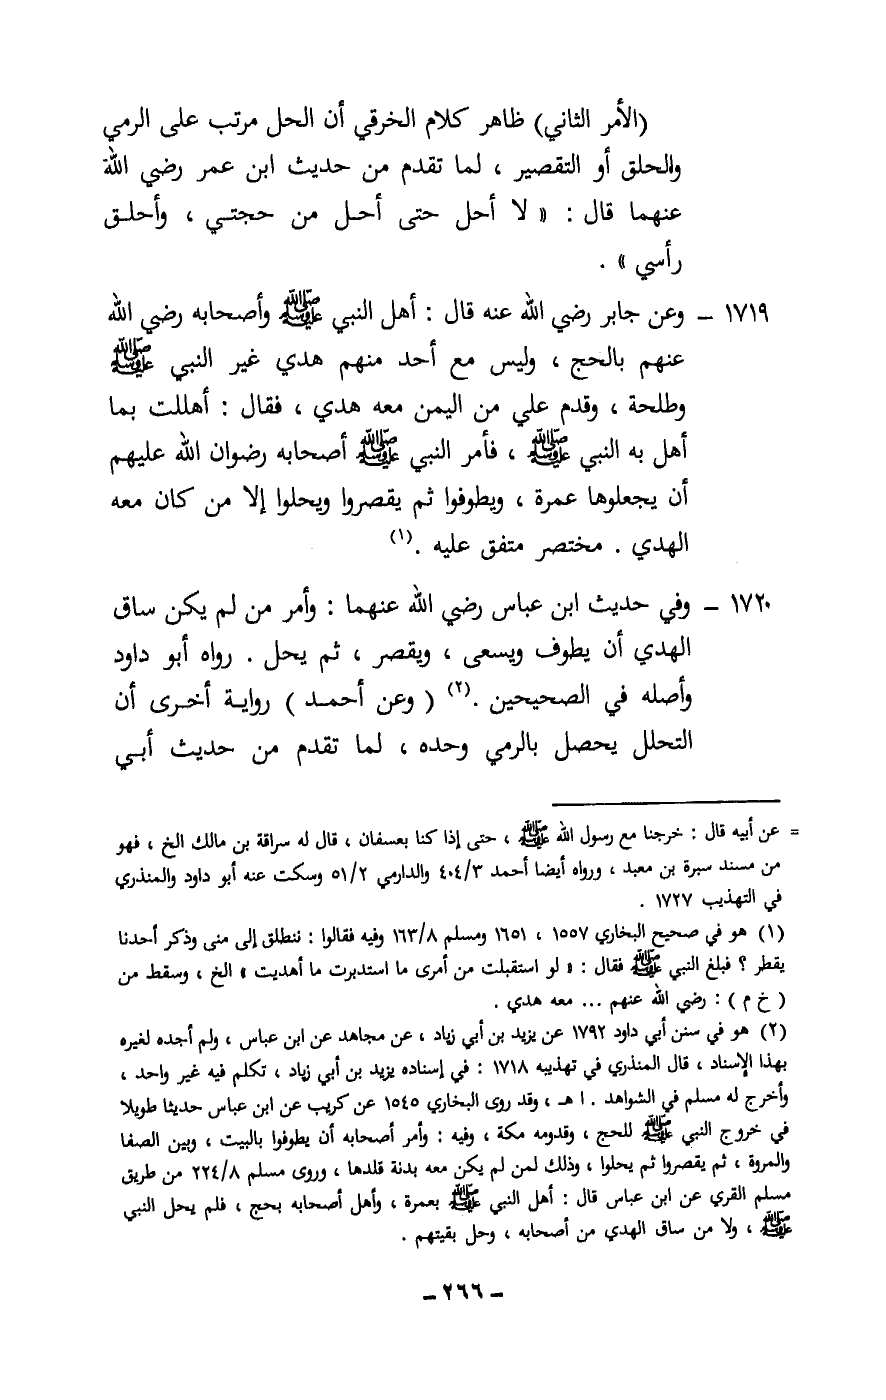 (الأمر الثاني) ظاهر كلام الخرقي أن الحل مرتب على الرمي
والحلق أو التقصير ، لما تقدم من حديث ابن عمر رضي الله
عنهما قال : « لا أحل حتى أحل من حجتي ، وأحلق
رأسي » .
١٧١٩ – وعن جابر رضي الله عنه قال : أهل النبي ﷺ وأصحابه رضي الله
عنهم بالحج ، وليس مع أحد منهم هدي غير النبي ﷺ
وطلحة ، وقدم علي من اليمن معه هدي ، فقال : أهللت بما
أهل به النبي ﷺ ، فأمر النبي ﷺ أصحابه رضوان الله عليهم
أن يجعلوها عمرة ، ويطوفوا ثم يقصروا ويحلوا إلا من كان معه
الهدي . مختصر متفق عليه .(١)
١٧٢٠ – وفي حديث ابن عباس رضي الله عنهما : وأمر من لم يكن ساق
الهدي أن يطوف ويسعى ، ويقصر ، ثم يحل . رواه أبو داود
وأصله في الصحيحين .(٢) ( وعن أحمد ) رواية أخرى أن
التحلل يحصل بالرمي وحده ، لما تقدم من حديث أبي
= عن أبيه قال : خرجنا مع رسول الله ﷺ ، حتى إذا كنا بعسفان ، قال له سراقة بن مالك الخ ، فهو
من مسند سبرة بن معبد ، ورواه أيضا أحمد ٤٠٤/٣ والدارمي ٥١/٢ وسكت عنه أبو داود والمنذري
في التهذيب ١٧٢٧ .
(١) هو في صحيح البخاري ١٥٥٧ ، ١٦٥١ ومسلم ١٦٣/٨ وفيه فقالوا : ننطلق إلى منى وذكر أحدنا
يقطر ؟ فبلغ النبي ﷺ فقال : « لو استقبلت من أمرى ما استدبرت ما أهديت » الخ ، وسقط من
( خ م ) : رضي الله عنهم ... معه هدي .
(٢) هو في سنن أبي داود ١٧٩٢ عن يزيد بن أبي زياد ، عن مجاهد عن ابن عباس ، ولم أجده لغيره
بهذا الإسناد ، قال المنذري في تهذيبه ١٧١٨ : في إسناده يزيد بن أبي زياد ، تكلم فيه غير واحد ،
وأخرج له مسلم في الشواهد . ا هـ ، وقد روى البخاري ١٥٤٥ عن كريب عن ابن عباس حديثا طويلا
في خروج النبي ﷺ للحج ، وقدومه مكة ، وفيه : وأمر أصحابه أن يطوفوا بالبيت ، وبين الصفا
والمروة ، ثم يقصروا ثم يحلوا ، وذلك لمن لم يكن معه بدنة قلدها ، وروى مسلم ٢٢٤/٨ من طريق
مسلم القري عن ابن عباس قال : أهل النبي ﷺ بعمرة ، وأهل أصحابه بحج ، فلم يحل النبي
ﷺ ، ولا من ساق الهدي من أصحابه ، وحل بقيتهم .
– ٢٦٦ –